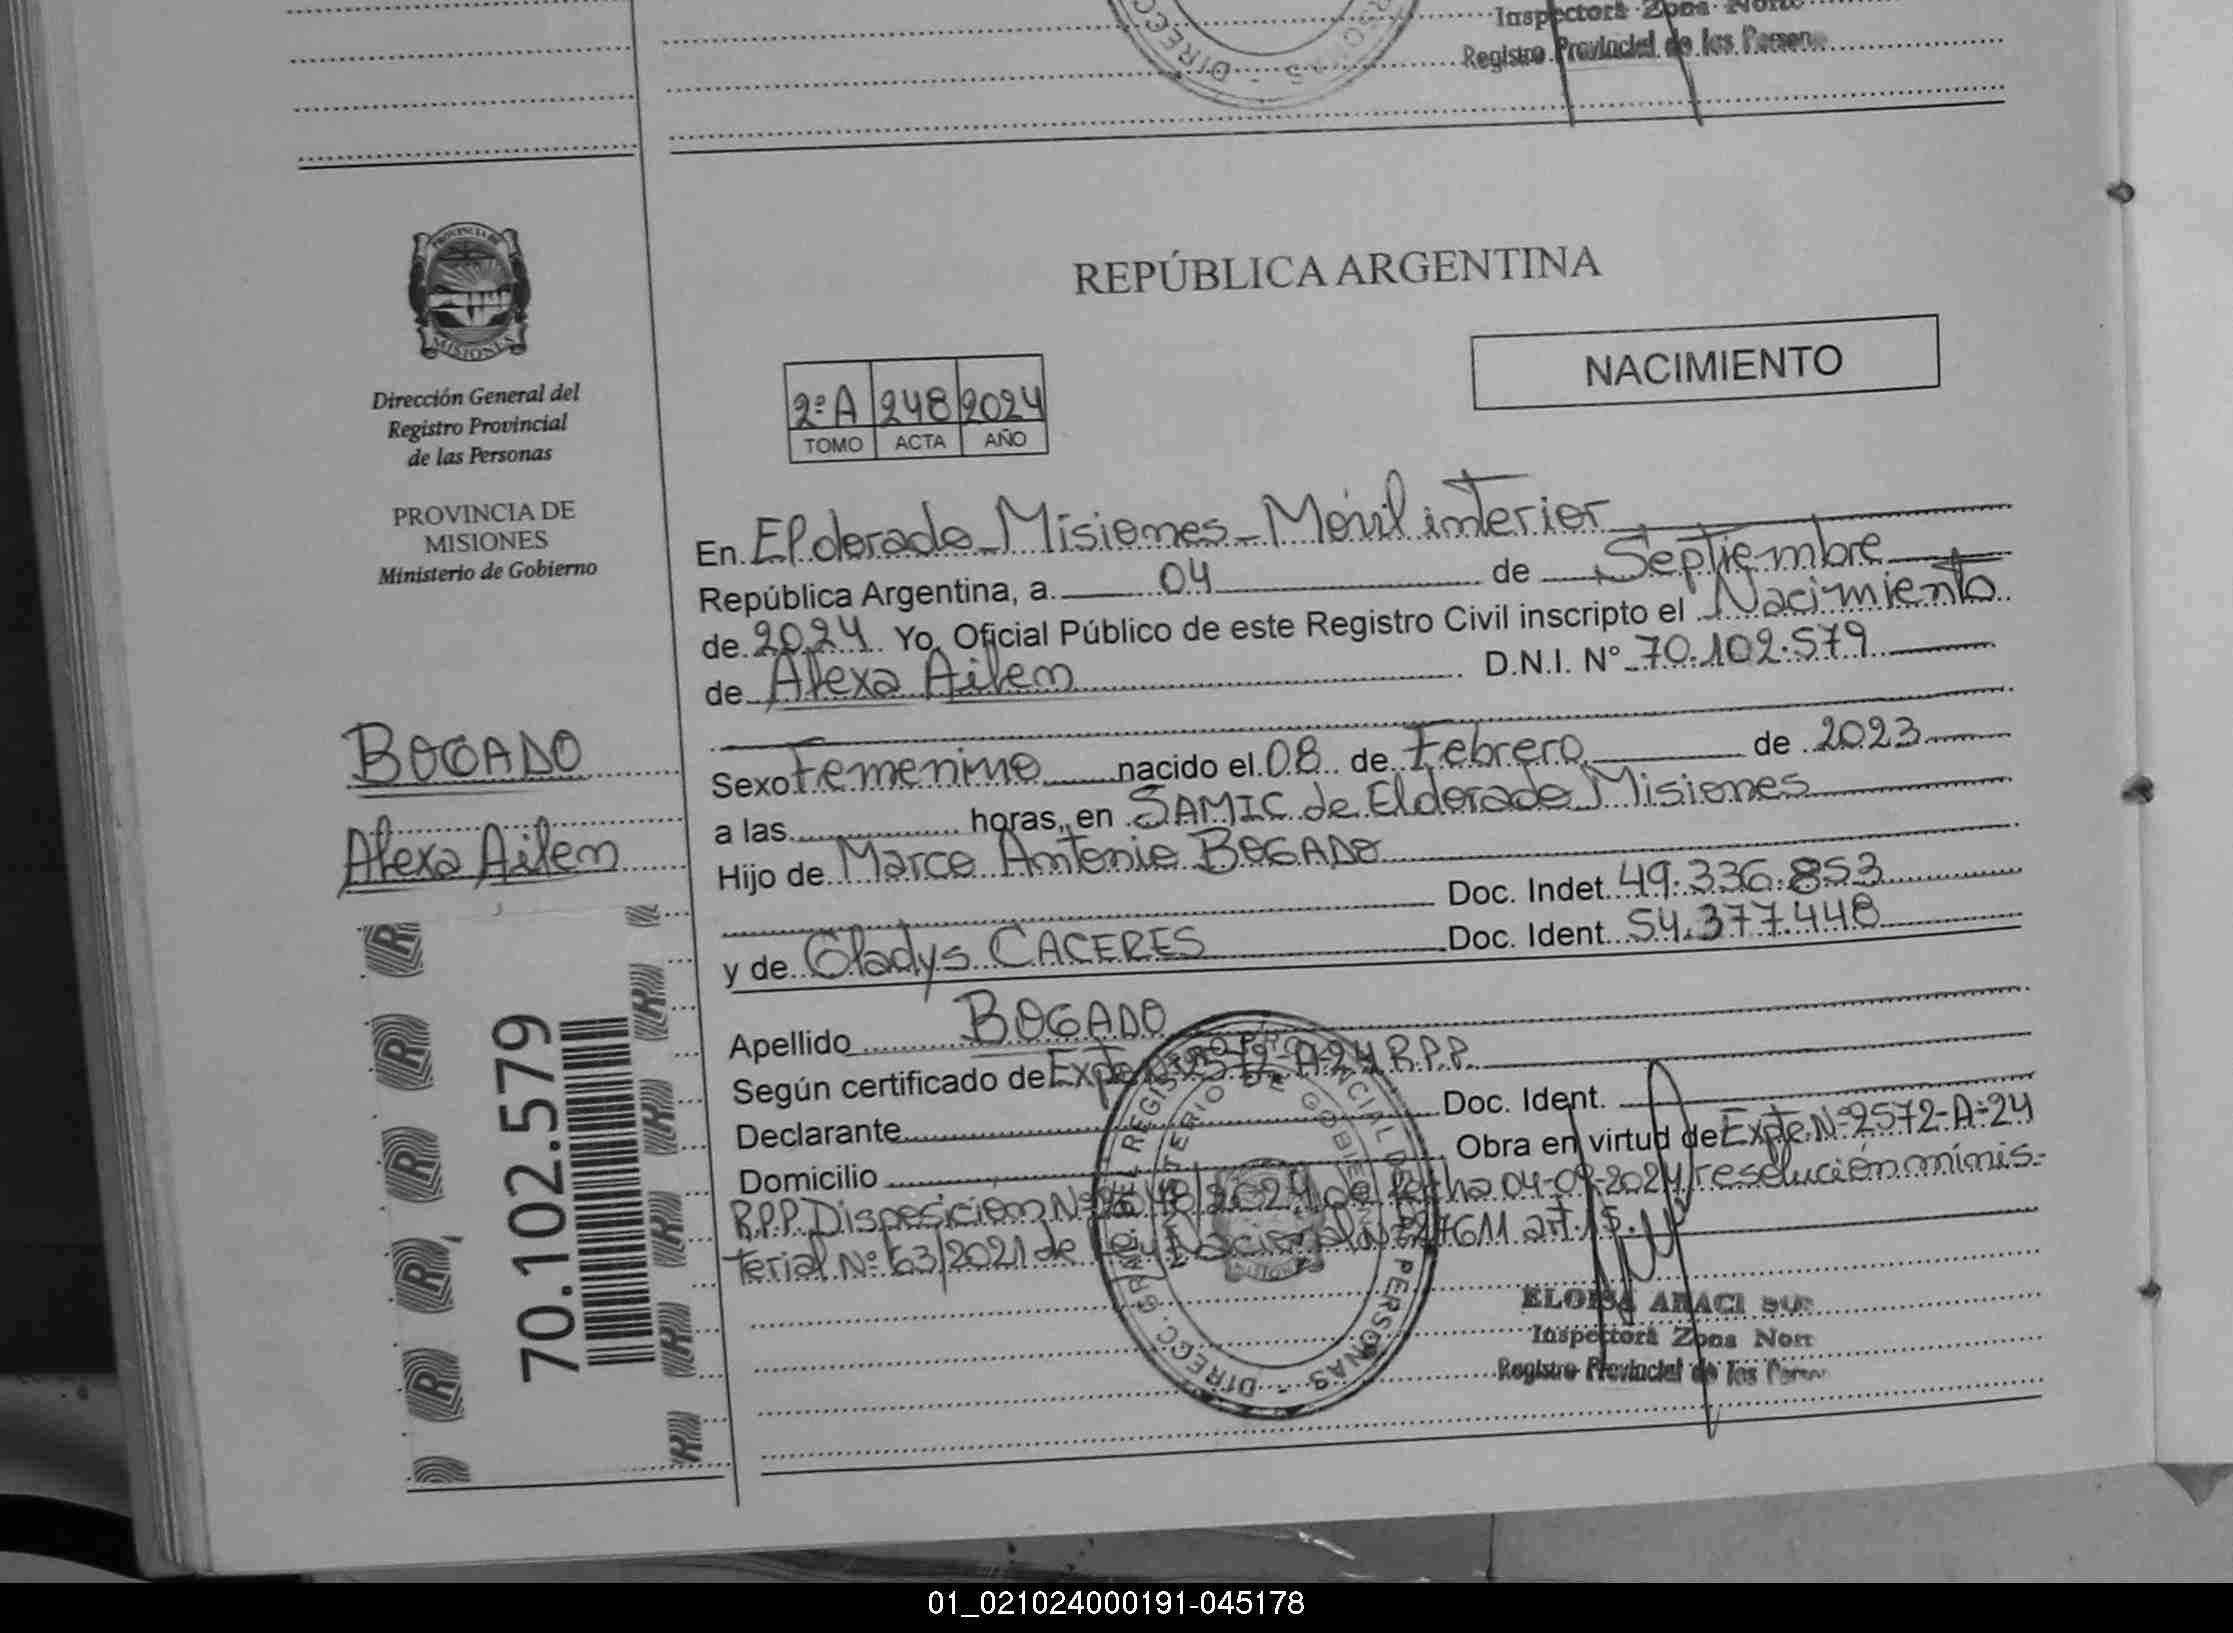 Inspectora Zona Norte
Registro Provincial de las Person
PROVINCIA DE
MISIONES
Dirección General del
Registro Provincial
de las Personas
PROVINCIA DE
MISIONES
Ministerio de Gobierno
BOGADO
Alexa Ailen
70.102.579
REPÚBLICA ARGENTINA
NACIMIENTO
2ºA 248 2024
TOMO ACTA AÑO
En Eldorado - Misiones - Móvil interior
República Argentina, a 04 de Septiembre
de 2024 Yo, Oficial Público de este Registro Civil inscripto el Nacimiento
de Alexa Ailen D.N.I. N° 70.102.579
Sexo Femenino nacido el 08 de Febrero de 2023
a las horas, en SAMIC de Eldorado Misiones
Hijo de Marco Antonio BOGADO
Doc. Indet. 49.336.853
y de Gladys CACERES Doc. Ident. 54.377.448
Apellido BOGADO
Según certificado de Expte Nº 2572-A-24 R.P.P.
Declarante Doc. Ident.
Domicilio Obra en virtud de Expte. Nº 2572-A-24
R.P.P. Disposición Nº /2024 de fecha 04-09-2024/resolución minis-
terial Nº 63/2021 de Ley Nacional Nº 27611 art. 15.
DIREC. GRAL. DE REGISTRO PROVINCIAL DE PERSONAS
MINISTERIO DE GOBIERNO
ELOISA ARACI
Inspectora Zona Nort
Registro Provincial de las Person
01_021024000191-045178